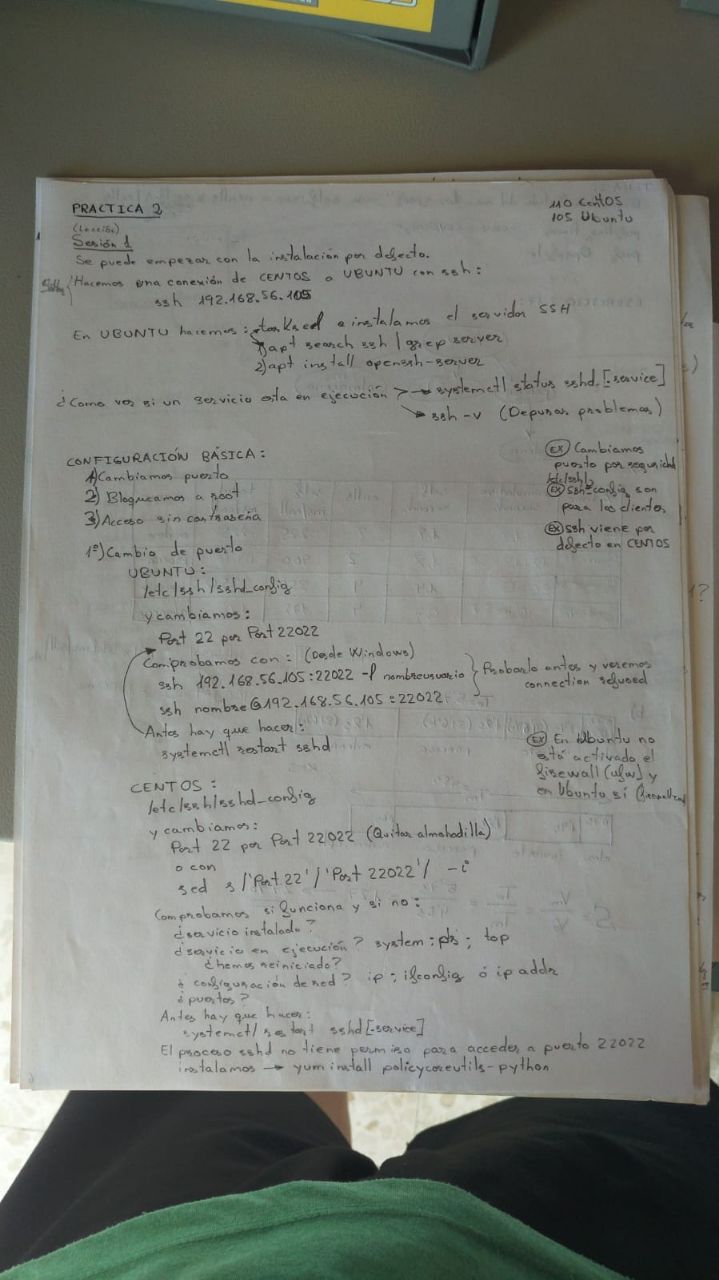 PRACTICA 2
110 CentOS
105 Ubuntu
(Lección)
Sesión 1
Se puede empezar con la instalación por defecto.
Hacemos una conexión de CENTOS a UBUNTU con ssh:
ssh 192.168.56.105
En UBUNTU hacemos: tasksel e instalamos el servidor SSH
1) apt search ssh | grep server
2) apt install openssh-server
¿Como ver si un servicio esta en ejecución? → systemctl status sshd.[service]
→ ssh -v (Depurar problemas)
CONFIGURACIÓN BÁSICA:
1) Cambiamos puerto
2) Bloqueamos a root
3) Acceso sin contraseña
(EX) Cambiamos
puerto por seguridad
(EX) ssh_config son
para los clientes
(EX) ssh viene por
defecto en CENTOS
1º) Cambio de puerto
UBUNTU:
/etc/ssh/sshd_config
y cambiamos:
Port 22 por Port 22022
Comprobamos con: (Desde Windows)
ssh 192.168.56.105:22022 -l nombreusuario
ssh nombre@192.168.56.105:22022
Probarlo antes y veremos
connection refused
Antes hay que hacer:
systemctl restart sshd
(EX) En Ubuntu no
está activado el
firewall (ufw) y
en Ubuntu sí
CENTOS:
/etc/ssh/sshd_config
y cambiamos:
Port 22 por Port 22022 (Quitar almohadilla)
o con
sed s/'Port 22'/'Port 22022'/ -i
Comprobamos si funciona y si no:
¿servicio instalado?
¿servicio en ejecución? system; ps; top
¿hemos reiniciado?
¿configuración de red? ip; ifconfig ó ip addr
¿puertos?
Antes hay que hacer:
systemctl restart sshd[.service]
El proceso sshd no tiene permiso para acceder a puerto 22022
instalamos → yum install policycoreutils-python